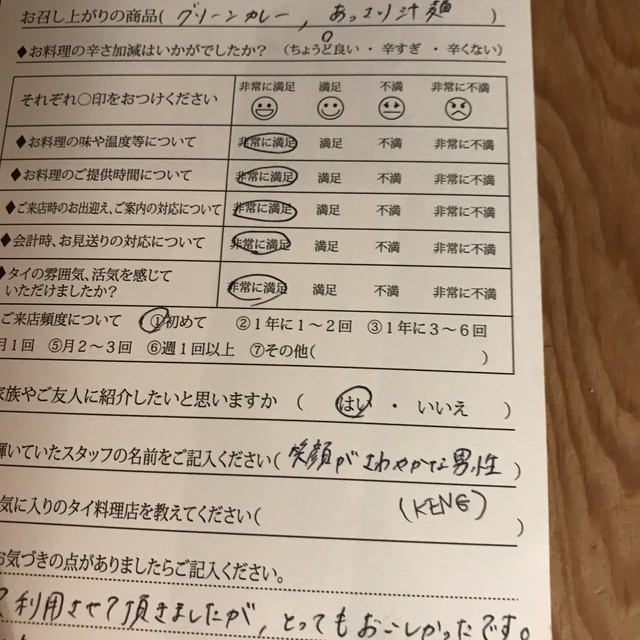 お召し上がりの商品( グリーンカレー , あっさり汁麺 )
◆お料理の辛さ加減はいかがでしたか? (ちょうど良い ・ 辛すぎ ・ 辛くない)
それぞれ○印をおつけください 非常に満足 満足 不満 非常に不満
◆お料理の味や温度等について 非常に満足 満足 不満 非常に不満
◆お料理のご提供時間について 非常に満足 満足 不満 非常に不満
◆ご来店時のお出迎え、ご案内の対応について 非常に満足 満足 不満 非常に不満
◆会計時、お見送りの対応について 非常に満足 満足 不満 非常に不満
◆タイの雰囲気、活気を感じて
いただけましたか? 非常に満足 満足 不満 非常に不満
ご来店頻度について ①初めて ②1年に1~2回 ③1年に3~6回
月1回 ⑤月2~3回 ⑥週1回以上 ⑦その他( )
家族やご友人に紹介したいと思いますか ( はい ・ いいえ )
輝いていたスタッフの名前をご記入ください( 笑顔がさわやかな男性 )
(KENG)
気に入りのタイ料理店を教えてください( )
お気づきの点がありましたらご記入ください。
利用させて頂きましたが、とってもおいしかったです。